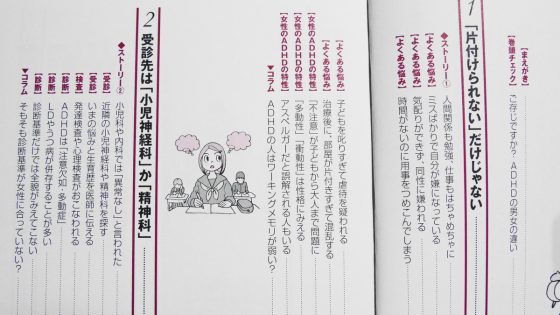 【まえがき】
【巻頭チェック】 ご存じですか? ADHDの男女の違い
1 「片付けられない」だけじゃない
◆ストーリー① 人間関係も勉強、仕事もはちゃめちゃに
【よくある悩み】 ミスばかりで自分が嫌になっている
【よくある悩み】 気配りができず、同性に嫌われる
【よくある悩み】 時間がないのに用事をつめこんでしまう
【よくある悩み】 子どもを叱りすぎて虐待を疑われる
【よくある悩み】 治療後に、部屋が片付きすぎて混乱する
【女性のADHDの特性】 「不注意」が子どもから大人まで問題に
【女性のADHDの特性】 「多動性」「衝動性」は性格にみえる
【女性のADHDの特性】 アスペルガーだと誤解される人もいる
▼コラム ADHDの人はワーキングメモリが弱い?
2 受診先は「小児神経科」か「精神科」
◆ストーリー② 小児科や内科では「異常なし」と言われた
【受診】 近隣の小児神経科や精神科を探す
【受診】 いまの悩みと生育歴を医師に伝える
【検査】 発達検査や心理検査がおこなわれる
【診断】 ADHDは「注意欠如・多動症」
【診断】 LDやうつ病が併存することが多い
【診断】 診断基準だけでは全貌がみえてこない
▼コラム そもそも診断基準が女性に合っていない?